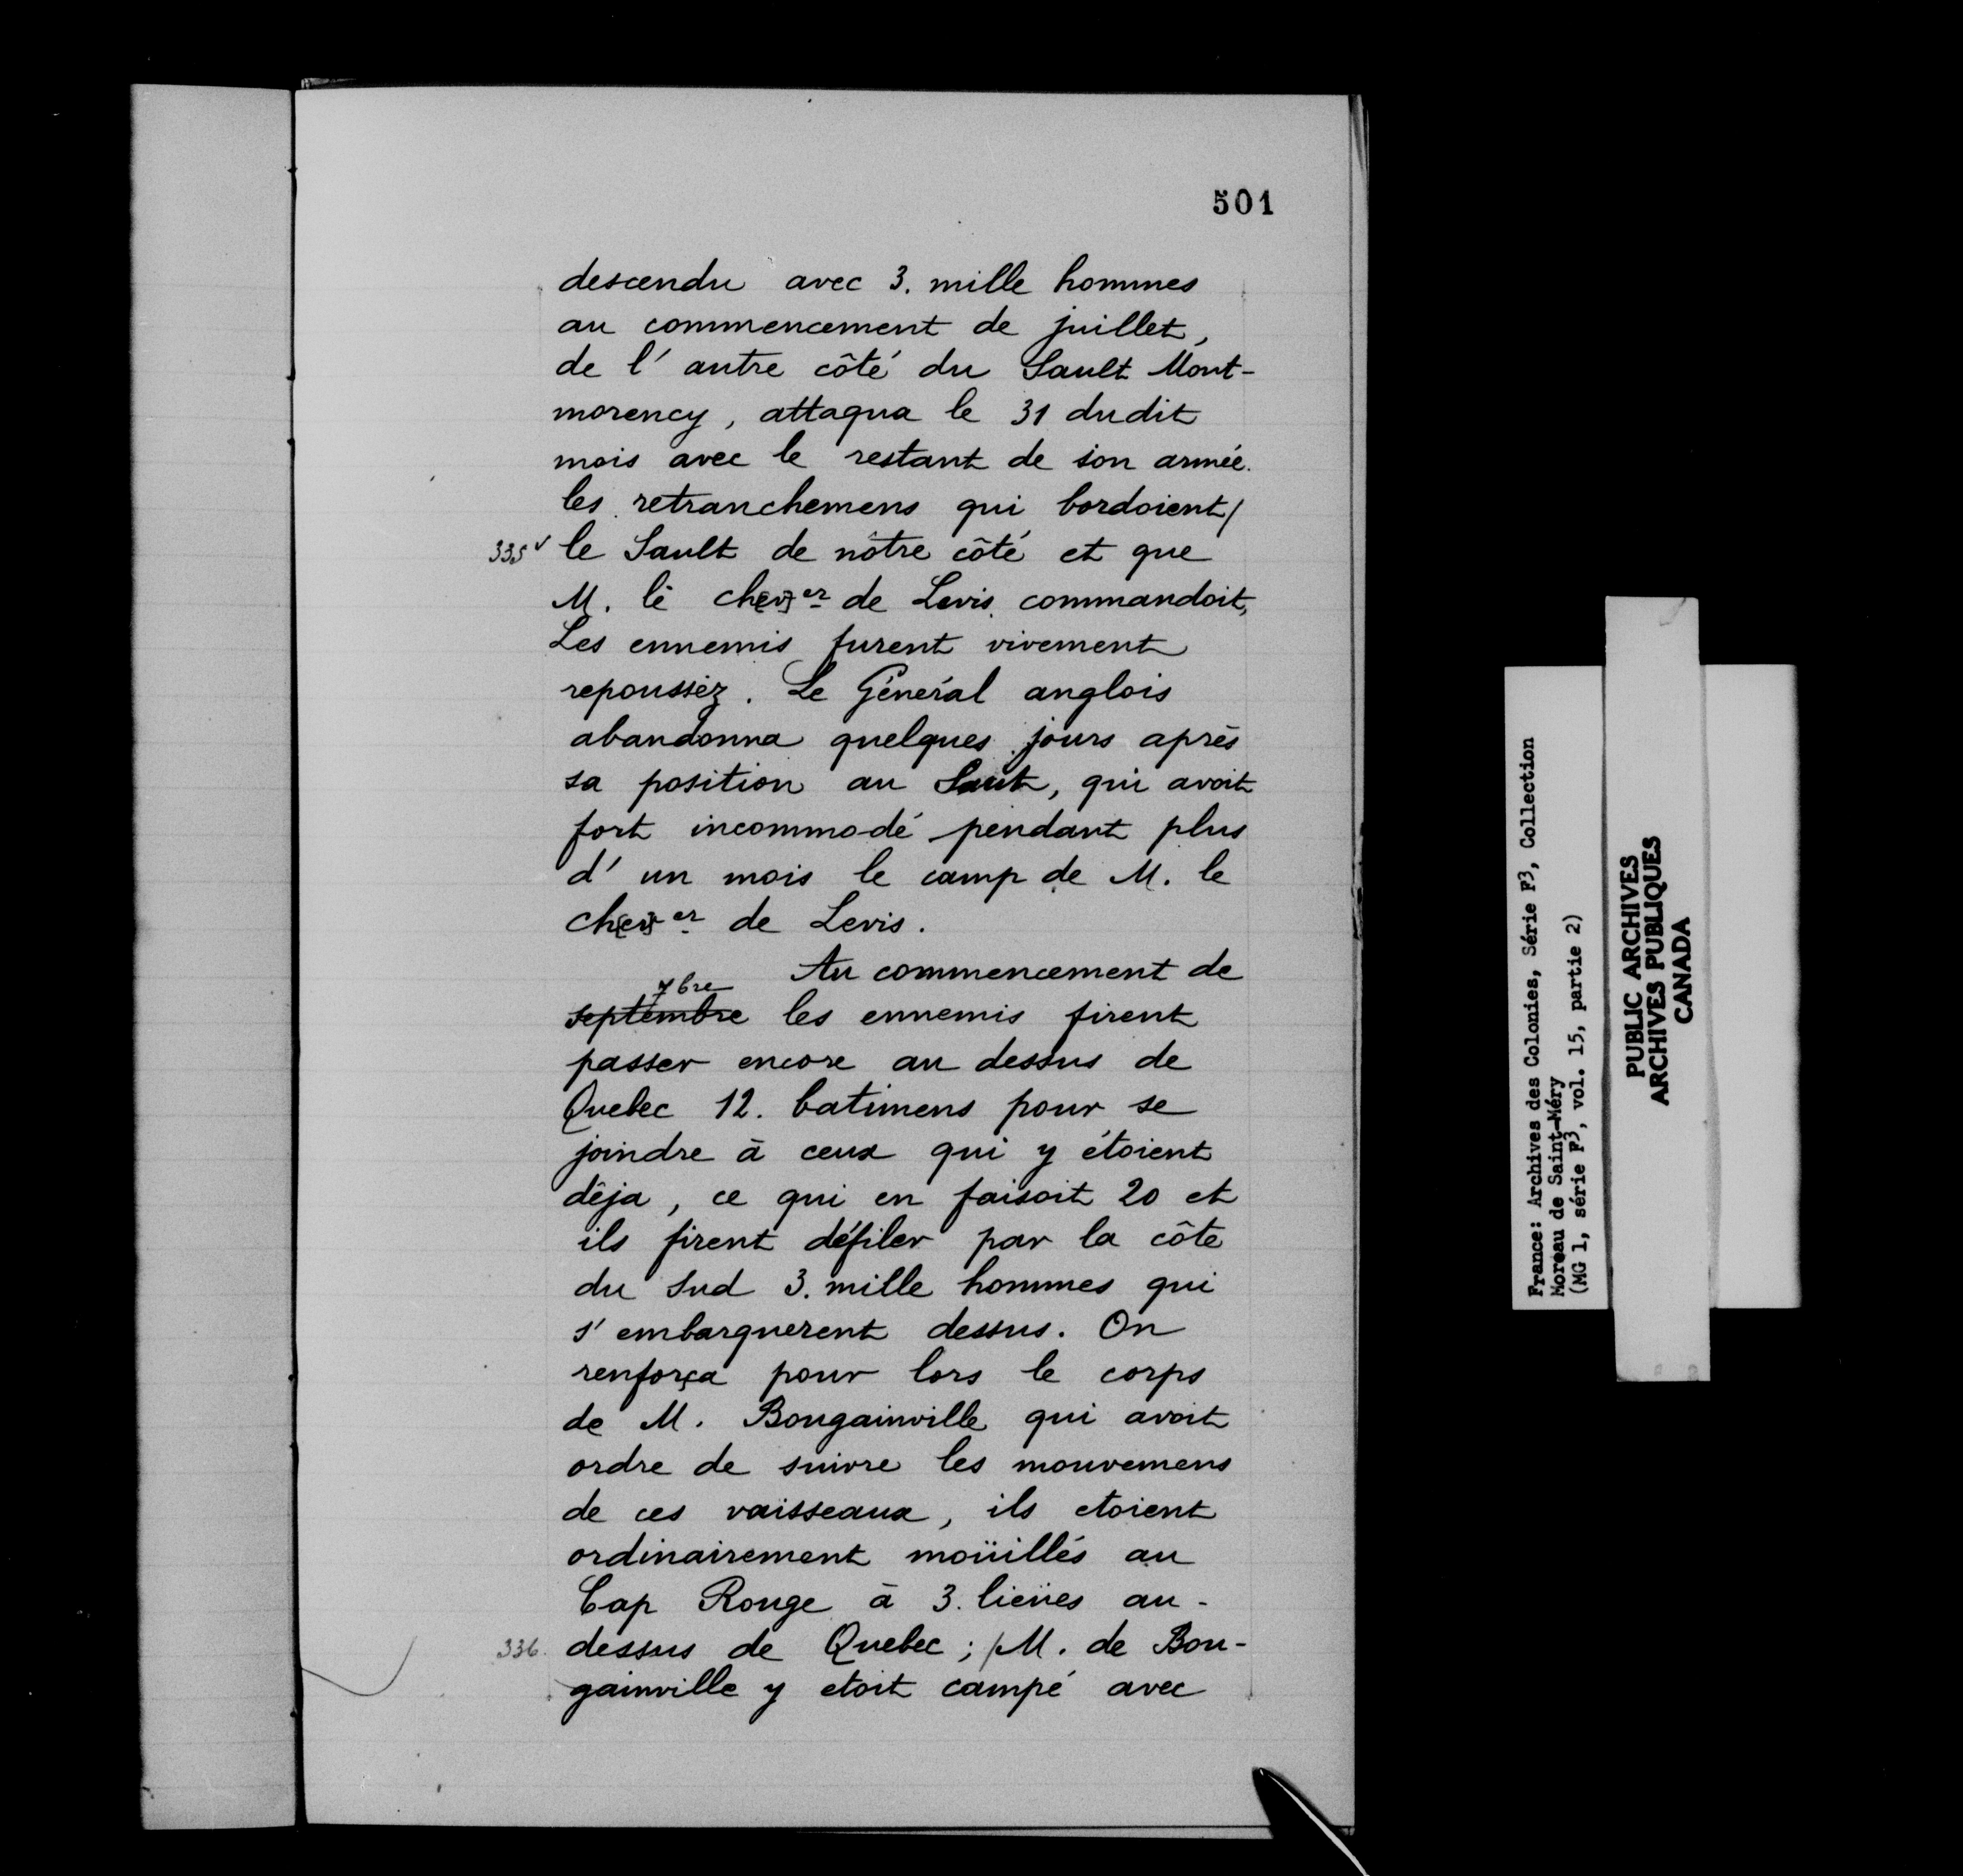 501
descendu avec 3. mille hommes
au commencement de juillet,
de l'autre côté du Sault Mont-
morency, attaqua le 31 dudit
mois avec le restant de son armée.
les retranchemens qui bordoient/
335v le Sault de nôtre côté et que
M. le ch[ev]er de Levis commandoit,
Les ennemis furent vivement
repoussez. Le Géneral anglois
abandonna quelques jours après
sa position au Saut, qui avoit
fort incommodé pendant plus
d'un mois le camp de M. le
ch[ev]er de Levis.
Au commencement de
7bre
septembre les ennemis firent
passer encore au dessus de
Quebec 12. batimens pour se
joindre à ceux qui y étoient
déja, ce qui en faisoit 20 et
ils firent défiler par la côte
du Sud 3. mille hommes qui
s'embarquerent dessus. On
renforça pour lors le corps
de M. Bougainville qui avoit
ordre de suivre les mouvemens
de ces vaisseaux, ils etoient
ordinairement moüillés au
Cap Rouge à 3. lieües au-
336. dessus de Quebec; /M. de Bou-
gainville y etoit campé avec
France: Archives des Colonies, Série F3, Collection
Moreau de Saint-Méry
(MG 1, série F3, vol. 15, partie 2)
PUBLIC ARCHIVES
ARCHIVES PUBLIQUES
CANADA